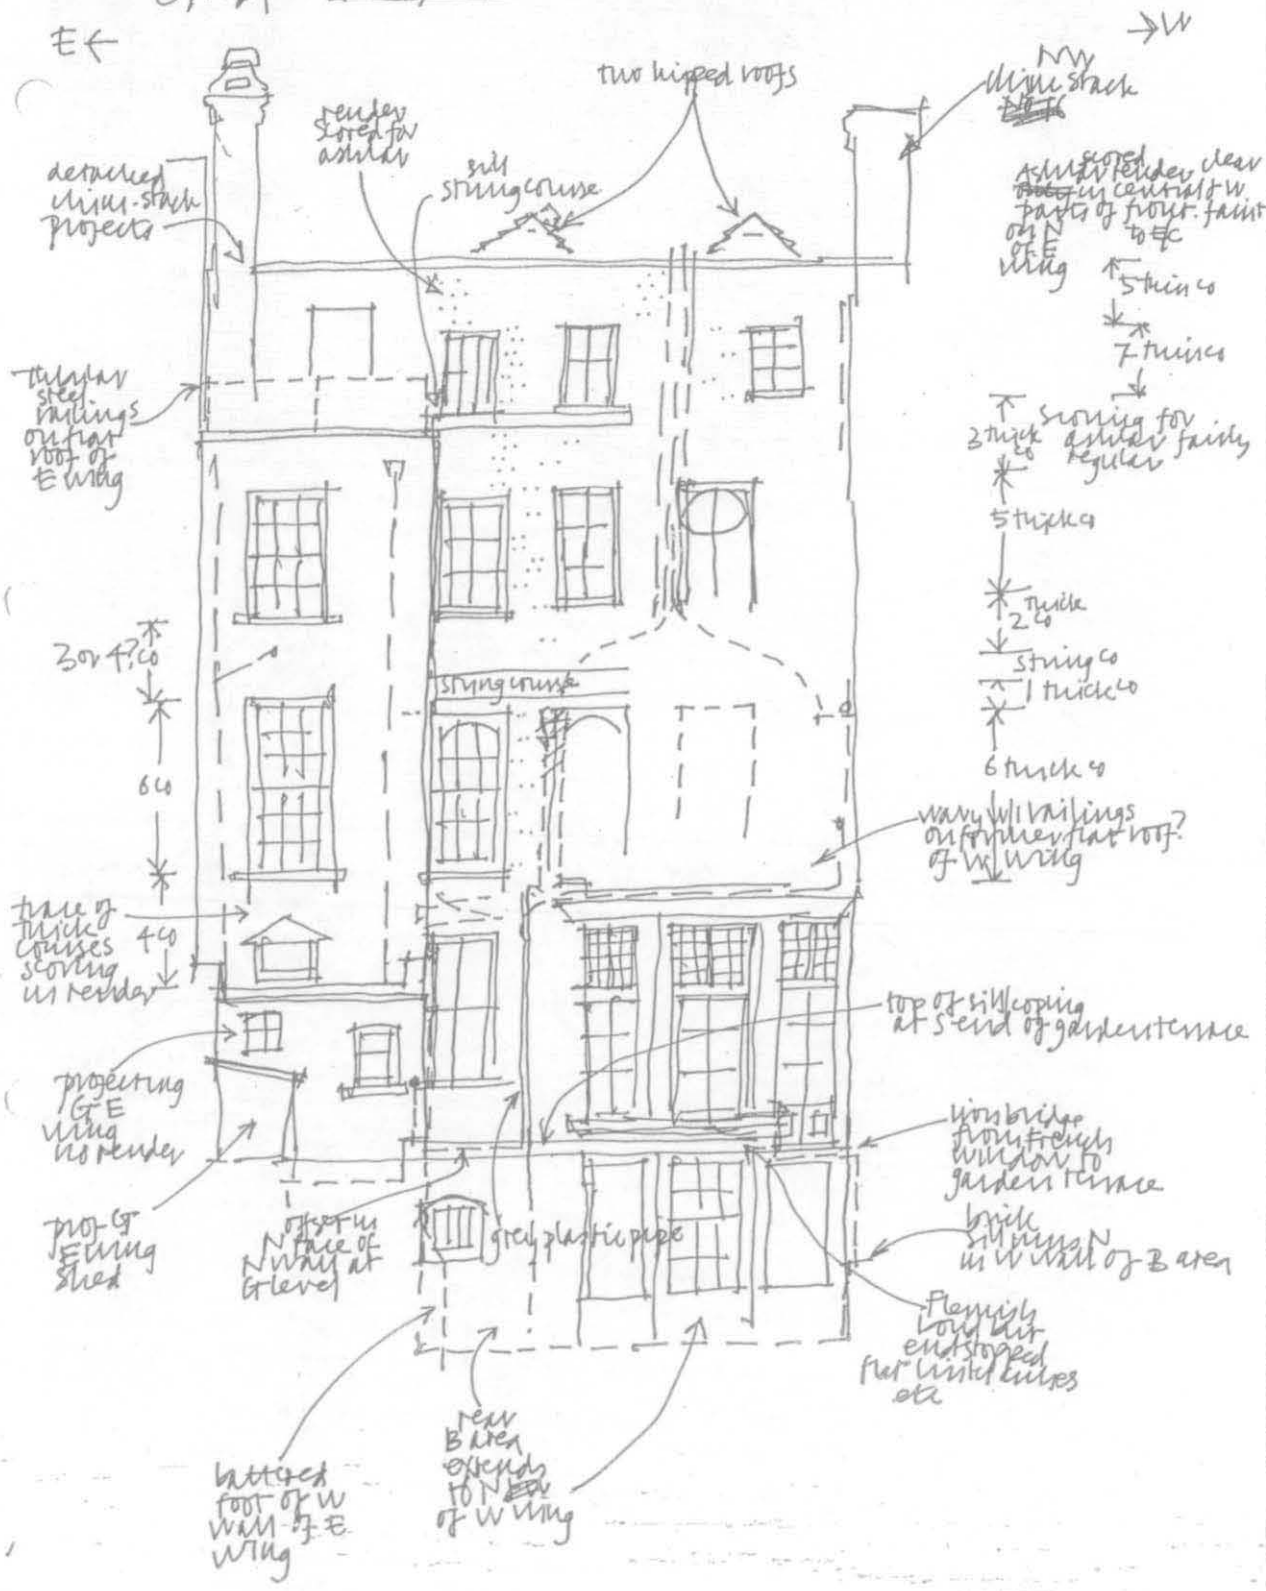 E ←
→ W
two hipped roofs
NW
chim stack
render
scored for
ashlar
sill
stringcourse
detached
chim-stack
projects
scored
ashlar render clear
in central & W
parts of front. faint
on N to EC
of E
wing
5 thin co
7 thin co
Tubular
steel
railings
on flat
roof of
E wing
3 thick
co
scoring for
ashlar fairly
regular
5 thick co
thick
2 co
string co
1 thick co
3 or 4? co
stringcourse
6 co
6 thick co
wavy WI railings
on former flat roof?
of W wing
trace of
thick
courses
scoring
in render
4 co
top of sill/coping
at S end of garden terrace
projecting
G E
wing
no render
iron bridge
from French
window to
garden terrace
proj G
E wing
shed
offset in
N face of
N wall at
G level
grey plastic pipe
brick
N
in W wall of B area
Flemish
bond but
endstopped
flat lintel arches
etc
rear
B area
extends
to N
of W wing
battered
foot of W
wall of E
wing